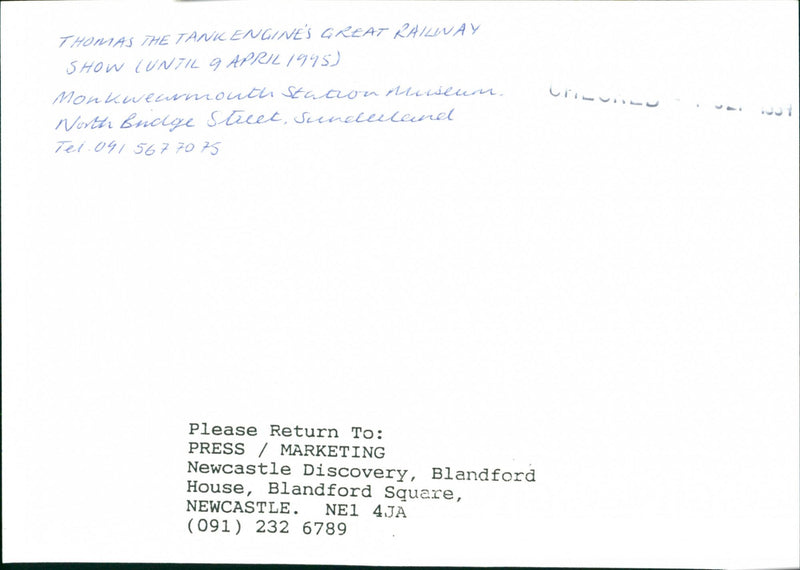 THOMAS THE TANK ENGINE'S GREAT RAILWAY
SHOW (UNTIL 9 APRIL 1995)
Monkwearmouth Station Museum.
CHECKED
North Bridge Street, Sunderland
Tel. 091 567 7075
Please Return To:
PRESS / MARKETING
Newcastle Discovery, Blandford
House, Blandford Square,
NEWCASTLE. NE1 4JA
(091) 232 6789